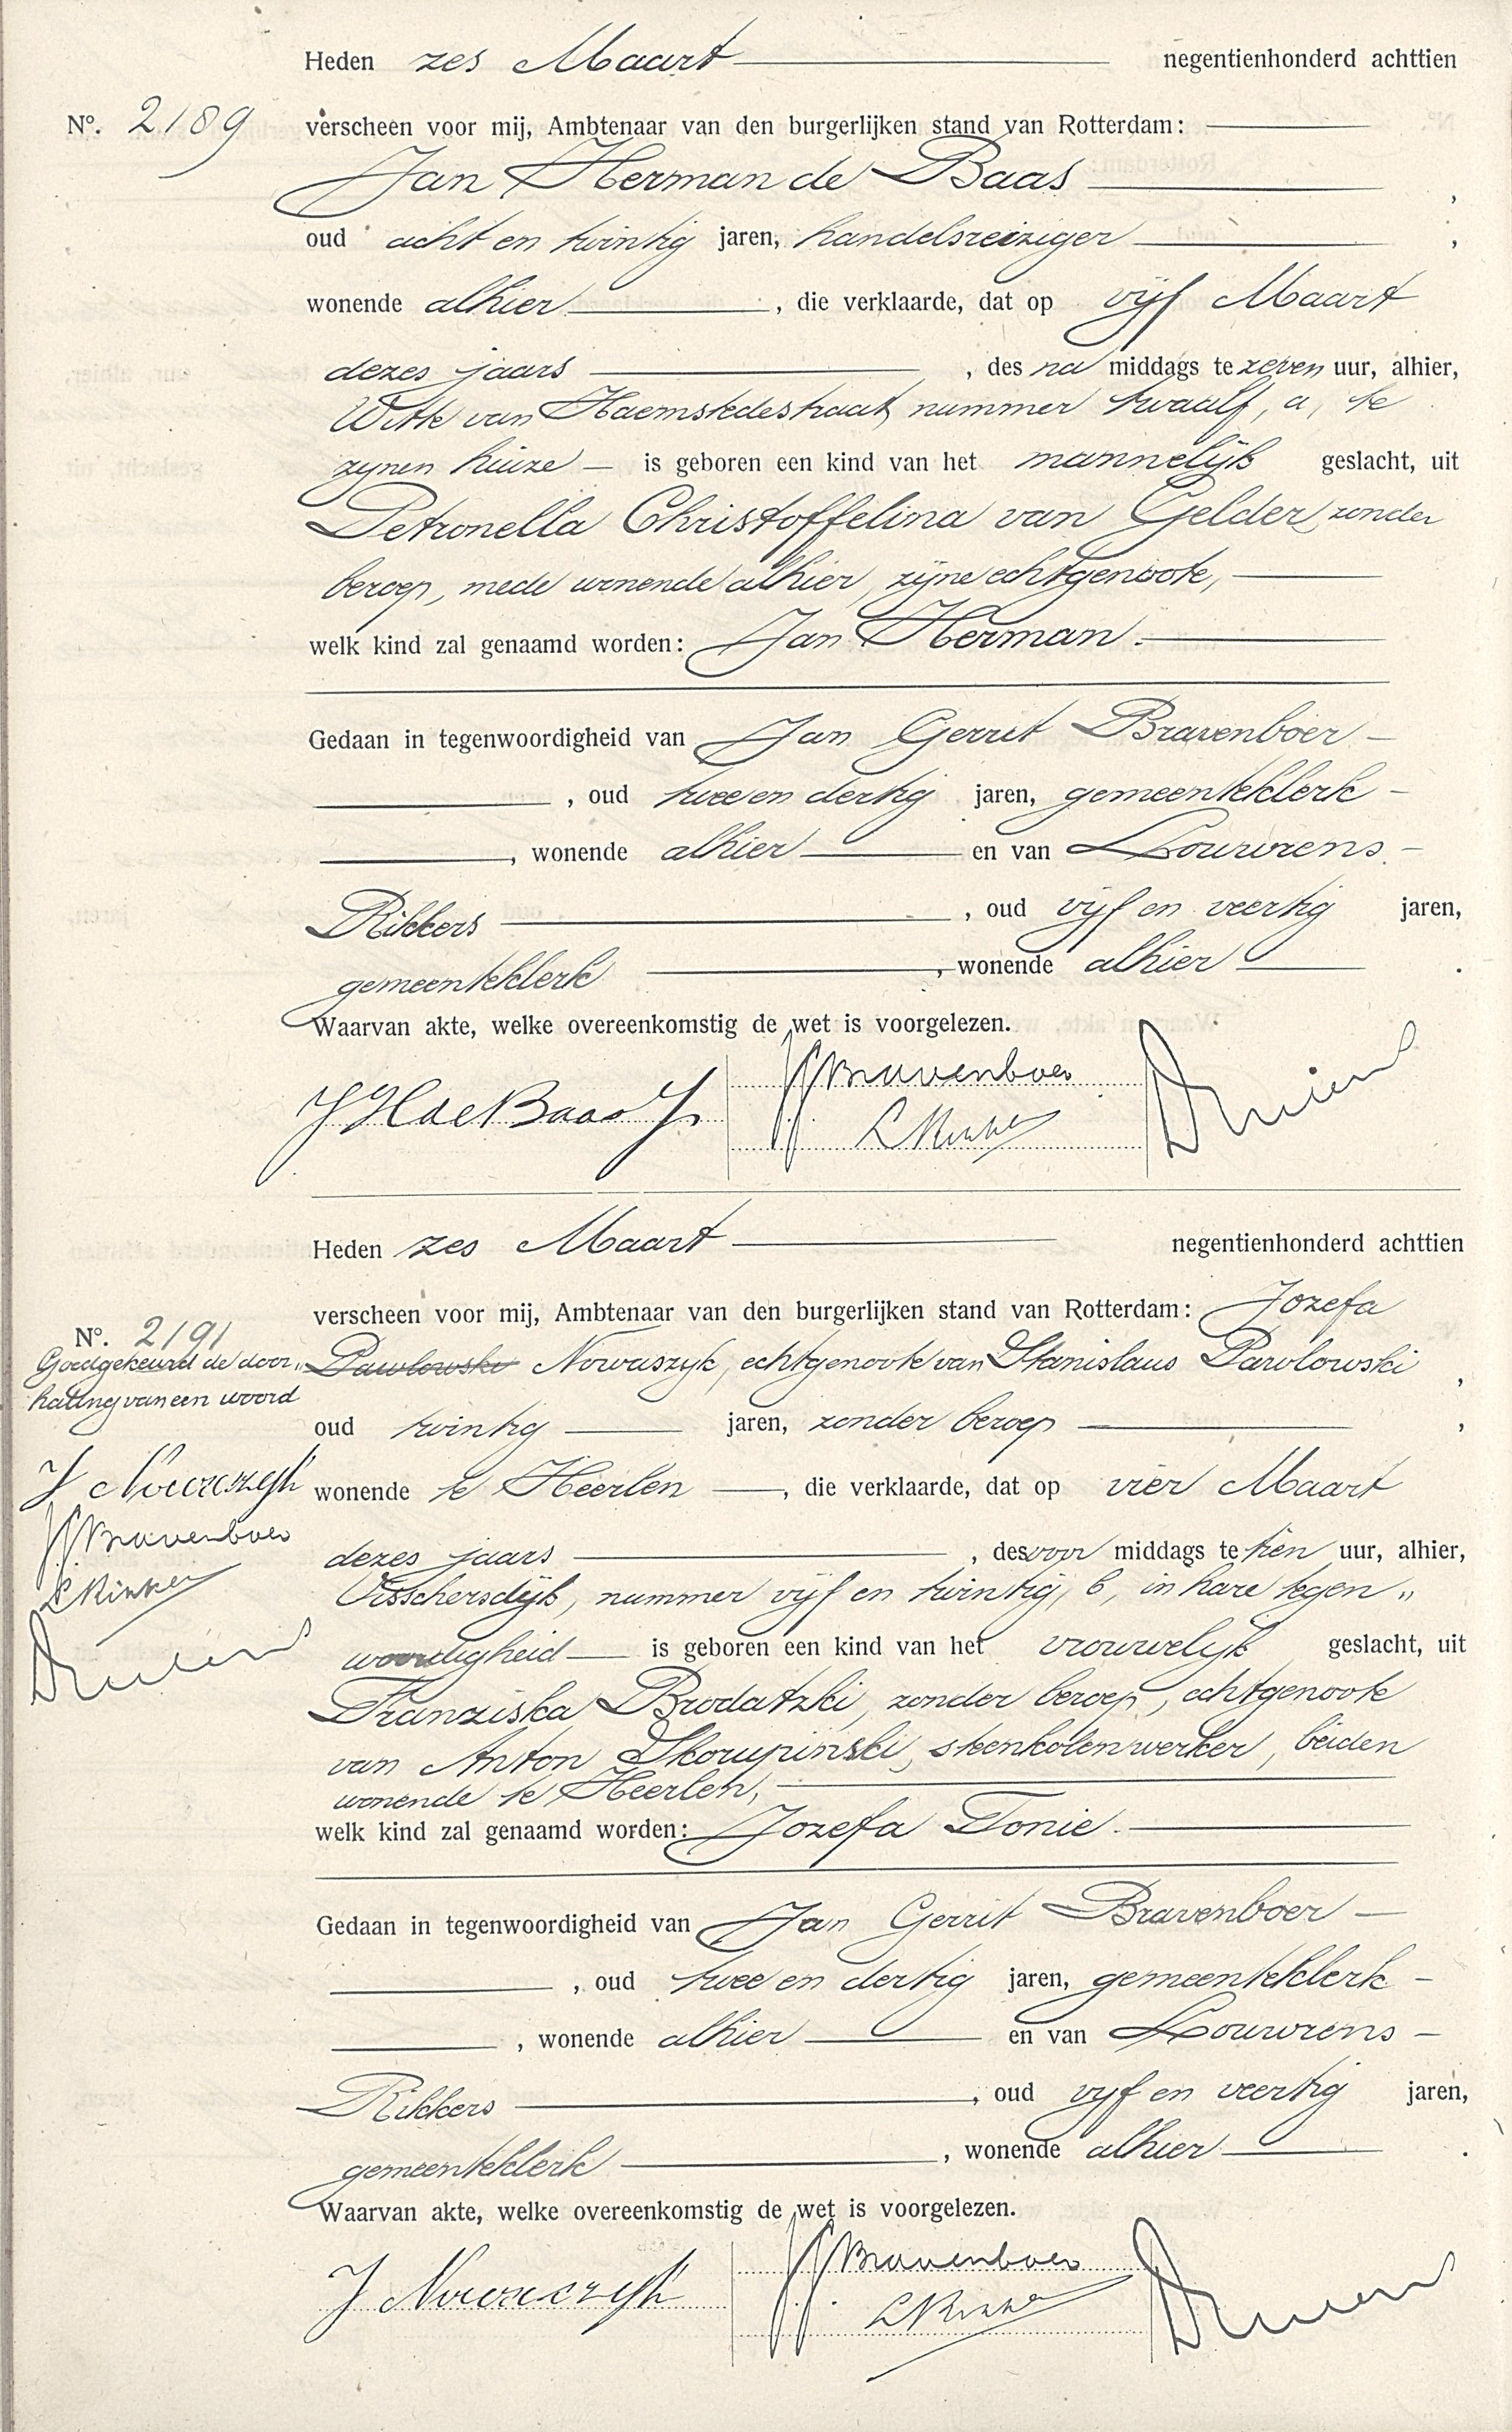 Heden zes Maart negentienhonderd achttien
No. 2189 verscheen voor mij, Ambtenaar van den burgerlijken stand van Rotterdam:
Jan Herman de Baas ,
oud acht en twintig jaren, handelsreiziger ,
wonende alhier , die verklaarde, dat op vijf Maart
dezes jaars , des na middags te zeven uur, alhier,
Witte van Haemstedestraat, nummer twaalf, a, te
zynen huize — is geboren een kind van het mannelijk geslacht, uit
Petronella Christoffelina van Gelder, zonder
beroep, mede wonende alhier, zijne echtgenoote,
welk kind zal genaamd worden: Jan Herman.
Gedaan in tegenwoordigheid van Jan Gerrit Bravenboer —
, oud twee en dertig jaren, gemeenteklerk —
, wonende alhier en van Louwrens —
Rikkers , oud vijf en veertig jaren,
gemeenteklerk , wonende alhier .
Waarvan akte, welke overeenkomstig de wet is voorgelezen.
J H de Baas Jr
JG Bravenboer
L Rikkers
Heden zes Maart negentienhonderd achttien
verscheen voor mij, Ambtenaar van den burgerlijken stand van Rotterdam: Jozefa
No. 2191
Goedgekeurd de door„
haling van een woord
J Nowaczyk
JG Bravenboer
L Rikkers
Pawlowski Nowaszyk, echtgenoote van Stanislaus Pawlowski ,
oud twintig jaren, zonder beroep ,
wonende te Heerlen , die verklaarde, dat op vier Maart
dezes jaars , des voor middags te tien uur, alhier,
Visschersdijk, nummer vijf en twintig, b, in hare tegen„
woordigheid — is geboren een kind van het vrouwelijk geslacht, uit
Franziska Brodatzki, zonder beroep, echtgenoote
van Anton Skorupinski, steenkolenwerker, beiden
wonende te Heerlen,
welk kind zal genaamd worden: Jozefa Tonie.
Gedaan in tegenwoordigheid van Jan Gerrit Bravenboer —
, oud twee en dertig jaren, gemeenteklerk —
, wonende alhier en van Louwrens —
Rikkers , oud vyf en veertig jaren,
gemeenteklerk , wonende alhier .
Waarvan akte, welke overeenkomstig de wet is voorgelezen.
J Nowaczyk
JG Bravenboer
L Rikkers